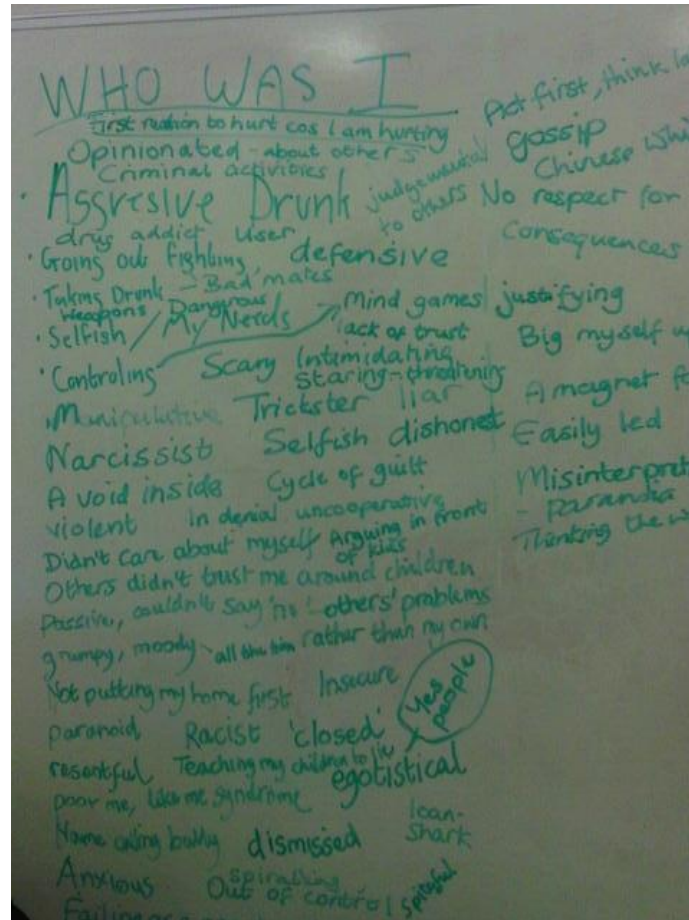 WHO WAS I
First reation to hurt cos I am hurting
Opinionated - about others
Criminal activities
Aggresive Drunk
judgemental to others
drug addict user
Going out fighting defensive
Taking Drunk - Bad mates
Weapons Dangerous
Selfish / My Needs
Mind games justifying
lack of trust
Controling
Scary Intimidating
Staring - threatening
Manipulative Trickster liar
Narcissist Selfish dishonest
A void inside Cycle of guilt
violent In denial uncooperative
Didn't care about myself Arguing in front of kids
Others didn't trust me around children
Passive, couldn't say 'no' others' problems
grumpy, moody - all the time rather than my own
Not putting my home first Insecure
Yes people
paranoid Racist 'closed'
resentful Teaching my children to lie
egotistical
poor me, like me syndrome
Name calling bully dismissed
loan-shark
Anxious spiralling
Out of control spiteful
Failing
Act first, think
gossip
Chinese
No respect for
Consequences
Big myself
A magnet
Easily led
Misinterpret
- paranoia
Thinking the